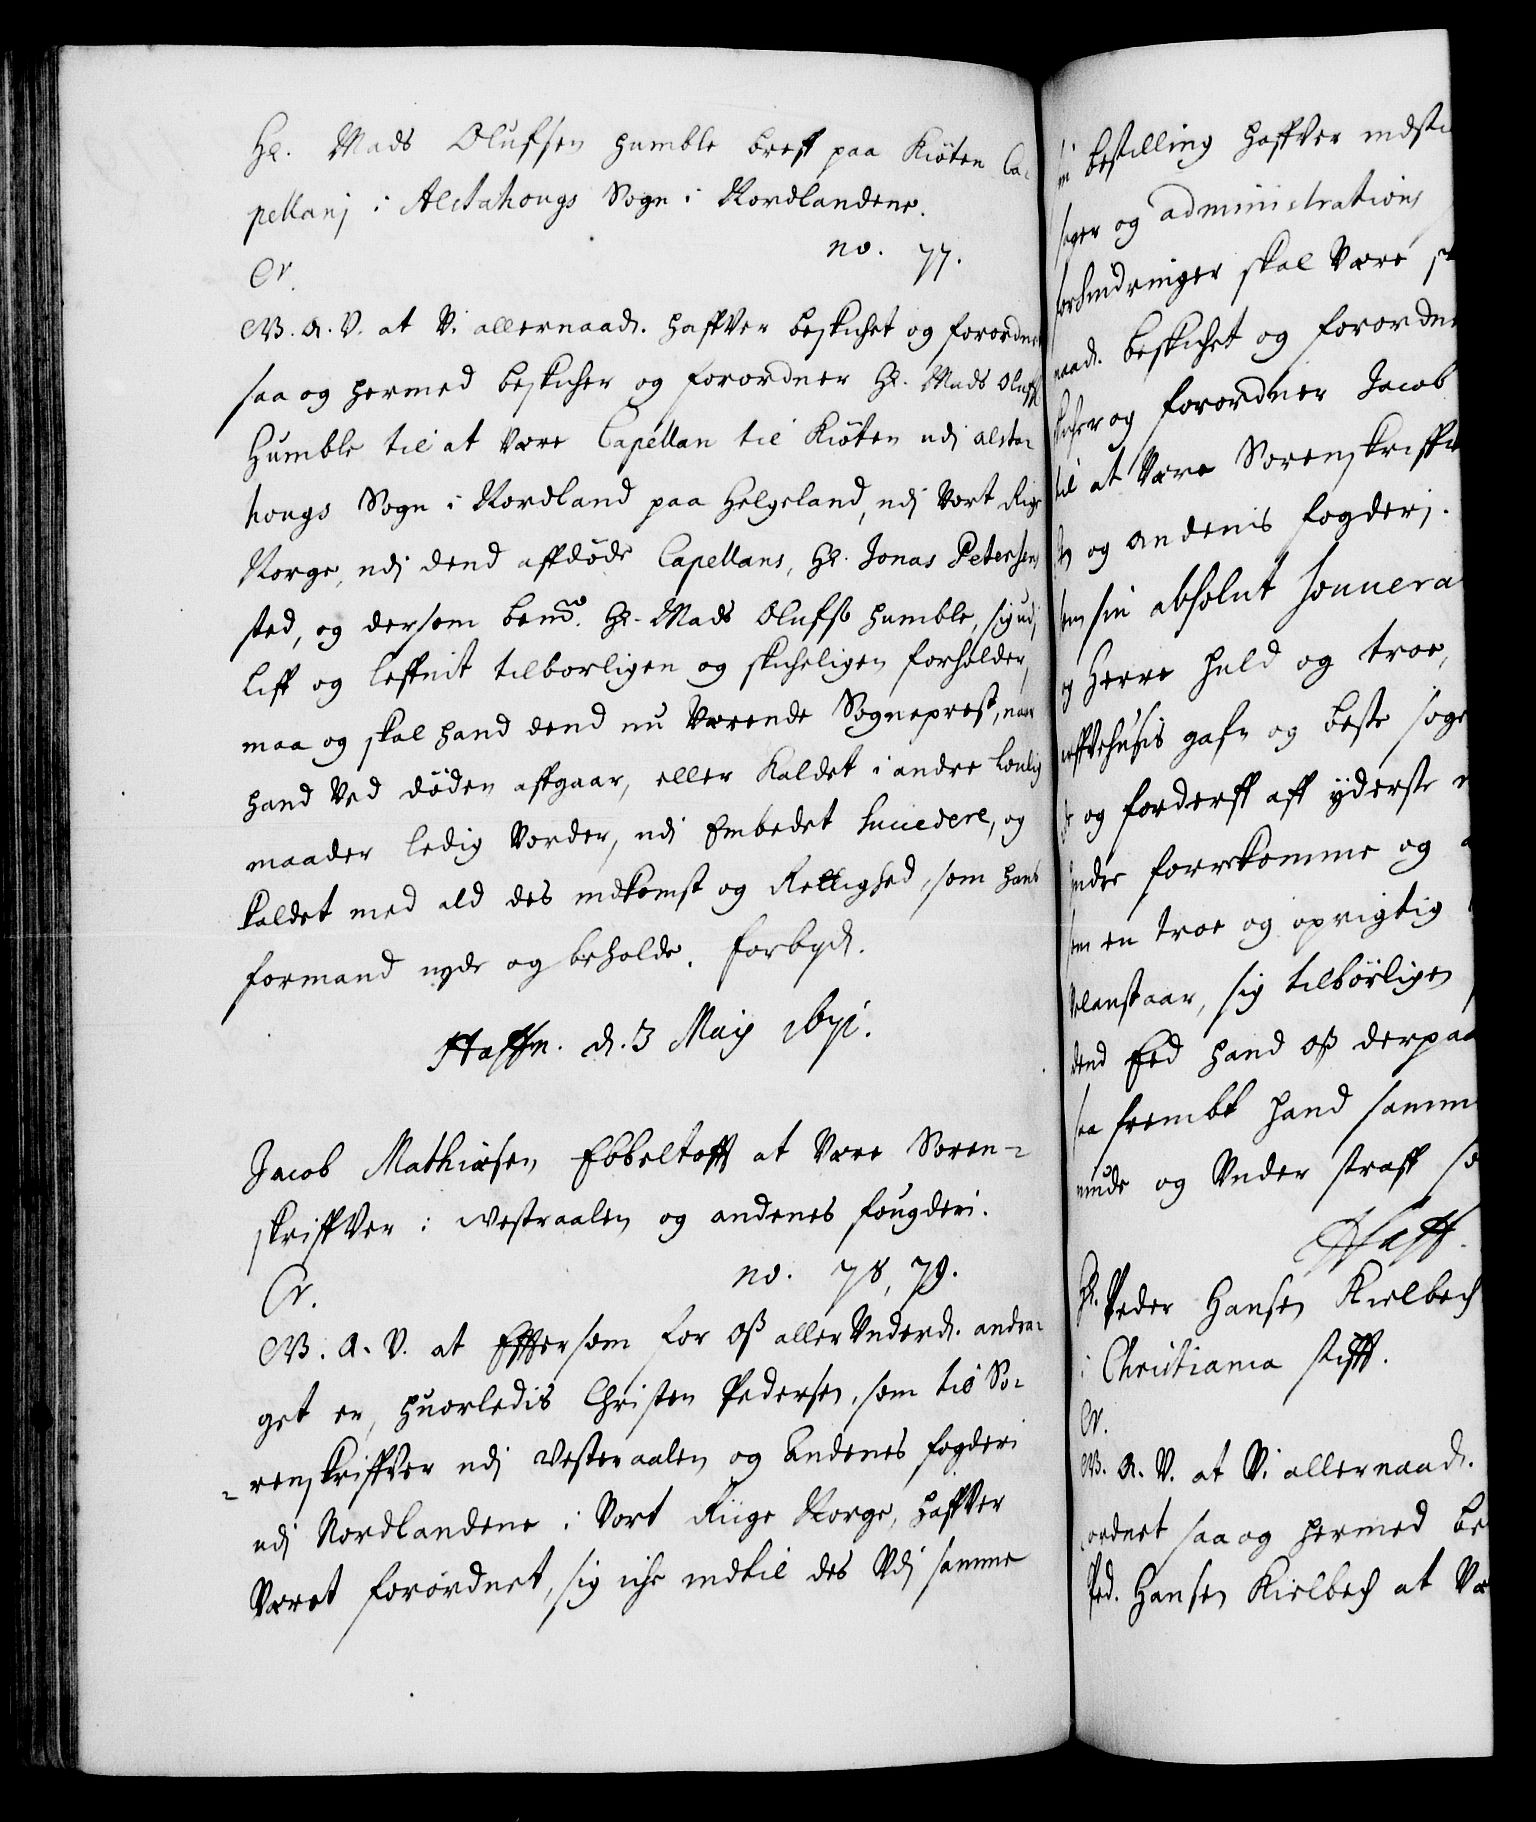 Hr. Mads Olufsen humble breff paa Kiöten Ca-
pellanj i Alstahougs Sogn i Nordlandene.
no. 77.
Cr.
W. A. V. at Vi allernaad. haffver beskichet og forordnet
saa og hermed beskicher og forordner Hr. Mads Oluffs.
Humble til at være Capellan til Kiöten udj alsta-
hougs Sogn i Nordland paa Helgeland, udj Vort Rige
Norge, udj dend affdöde Capellans, Hr. Jonas Petersens
sted, og dersom bemd. Hr. Mads Olufsø humble, sig udj
liff og leffnit tilborligen og skicheligen forholder,
maa og skal hand dend nu Værende Sogneprest, naar
hand Ved döden affgaar, eller Kaldet i andre loulig
maader ledig Vorder, udj Embedet succedere, og
kaldet med ald des indkomst og Rettighed, som hans
formand nyde og beholde. forbyd.
Haffn. d. 3 Maij 1671.
Jacob Mathiæsen Ebbeltofft at Være Soren-
skriffver i westraalen og andenes fougderi.
no. 78, 79.
Cr.
W. A. V. at Effersom for oß aller Underd. andra-
get er, huorledis Christen Pedersen, som til So-
renskriffver udj Vesteraalen og Andenes fogderi
udj Nordlandene i Vort Riige Norge, haffver
Været forordnet, sig iche indtil des Udj samme
bestilling haffver indsti
sager og administrations
forhindringer skal Være
naad. beskichet og forordne
skicher og forordner Jacob
til at Være Sorenskriffve
og andenis fogderj.
som sin absolut souvera
og Herre huld og troe,
arffvehusis gafn og beste söge
og forderff aff yderste
hindre forrekomme og
som en troe og oprigtig
Velanstaar, sig tilbörligen
dend Eed hand oß derpaa
saa frembt hand samm
minde og Under straff so
Haff.
Hr. Peder Hansen Kielbech
i Christiania stifft.
Cr.
W. A. V. at Vi allernaad.
ordnet saa og hermed be
Ped. Hansen Kielbech at Væ